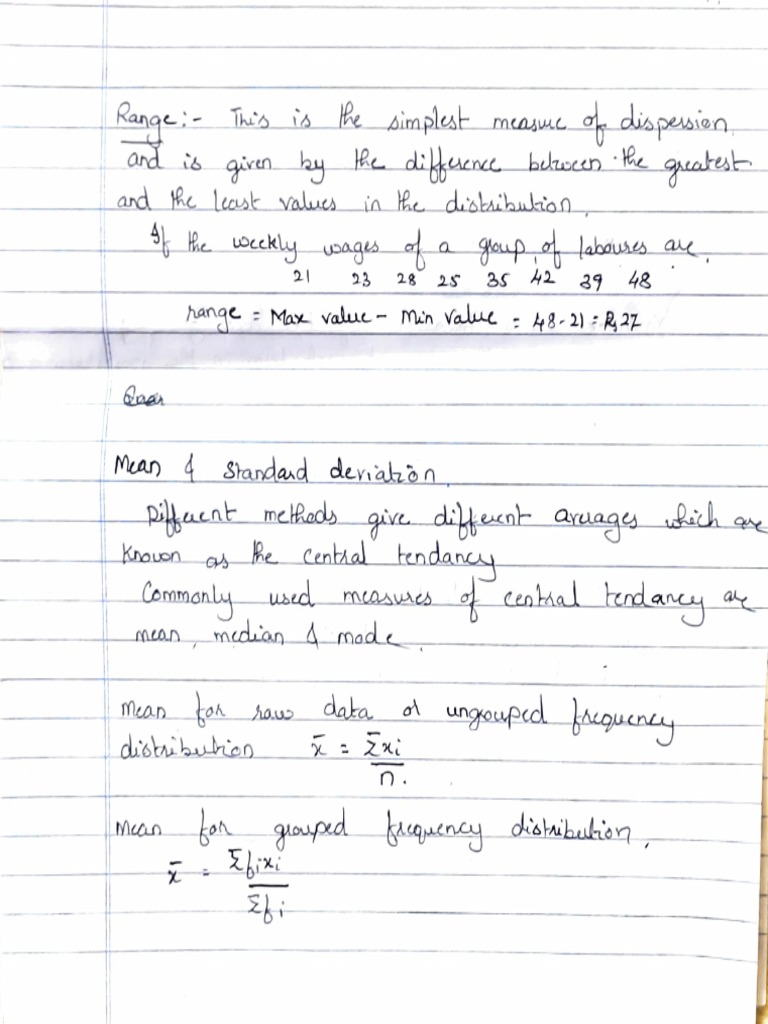 Range:- This is the simplest measure of dispersion
and is given by the difference between the greatest
and the least values in the distribution.
If the weekly wages of a group of labouses are.
21 23 28 25 35 42 39 48
range = Max value - Min value = 48-21 = Rs 27
Mean & standard deviation.
Different methods give different averages which are
known as the central tendancy
Commonly used measures of central tendancy are
mean, median & mode.
Mean for raw data or ungrouped frequency
distribution x̄ = Σxi
n.
Mean for grouped frequency distribution,
x̄ = Σfixi
Σfi